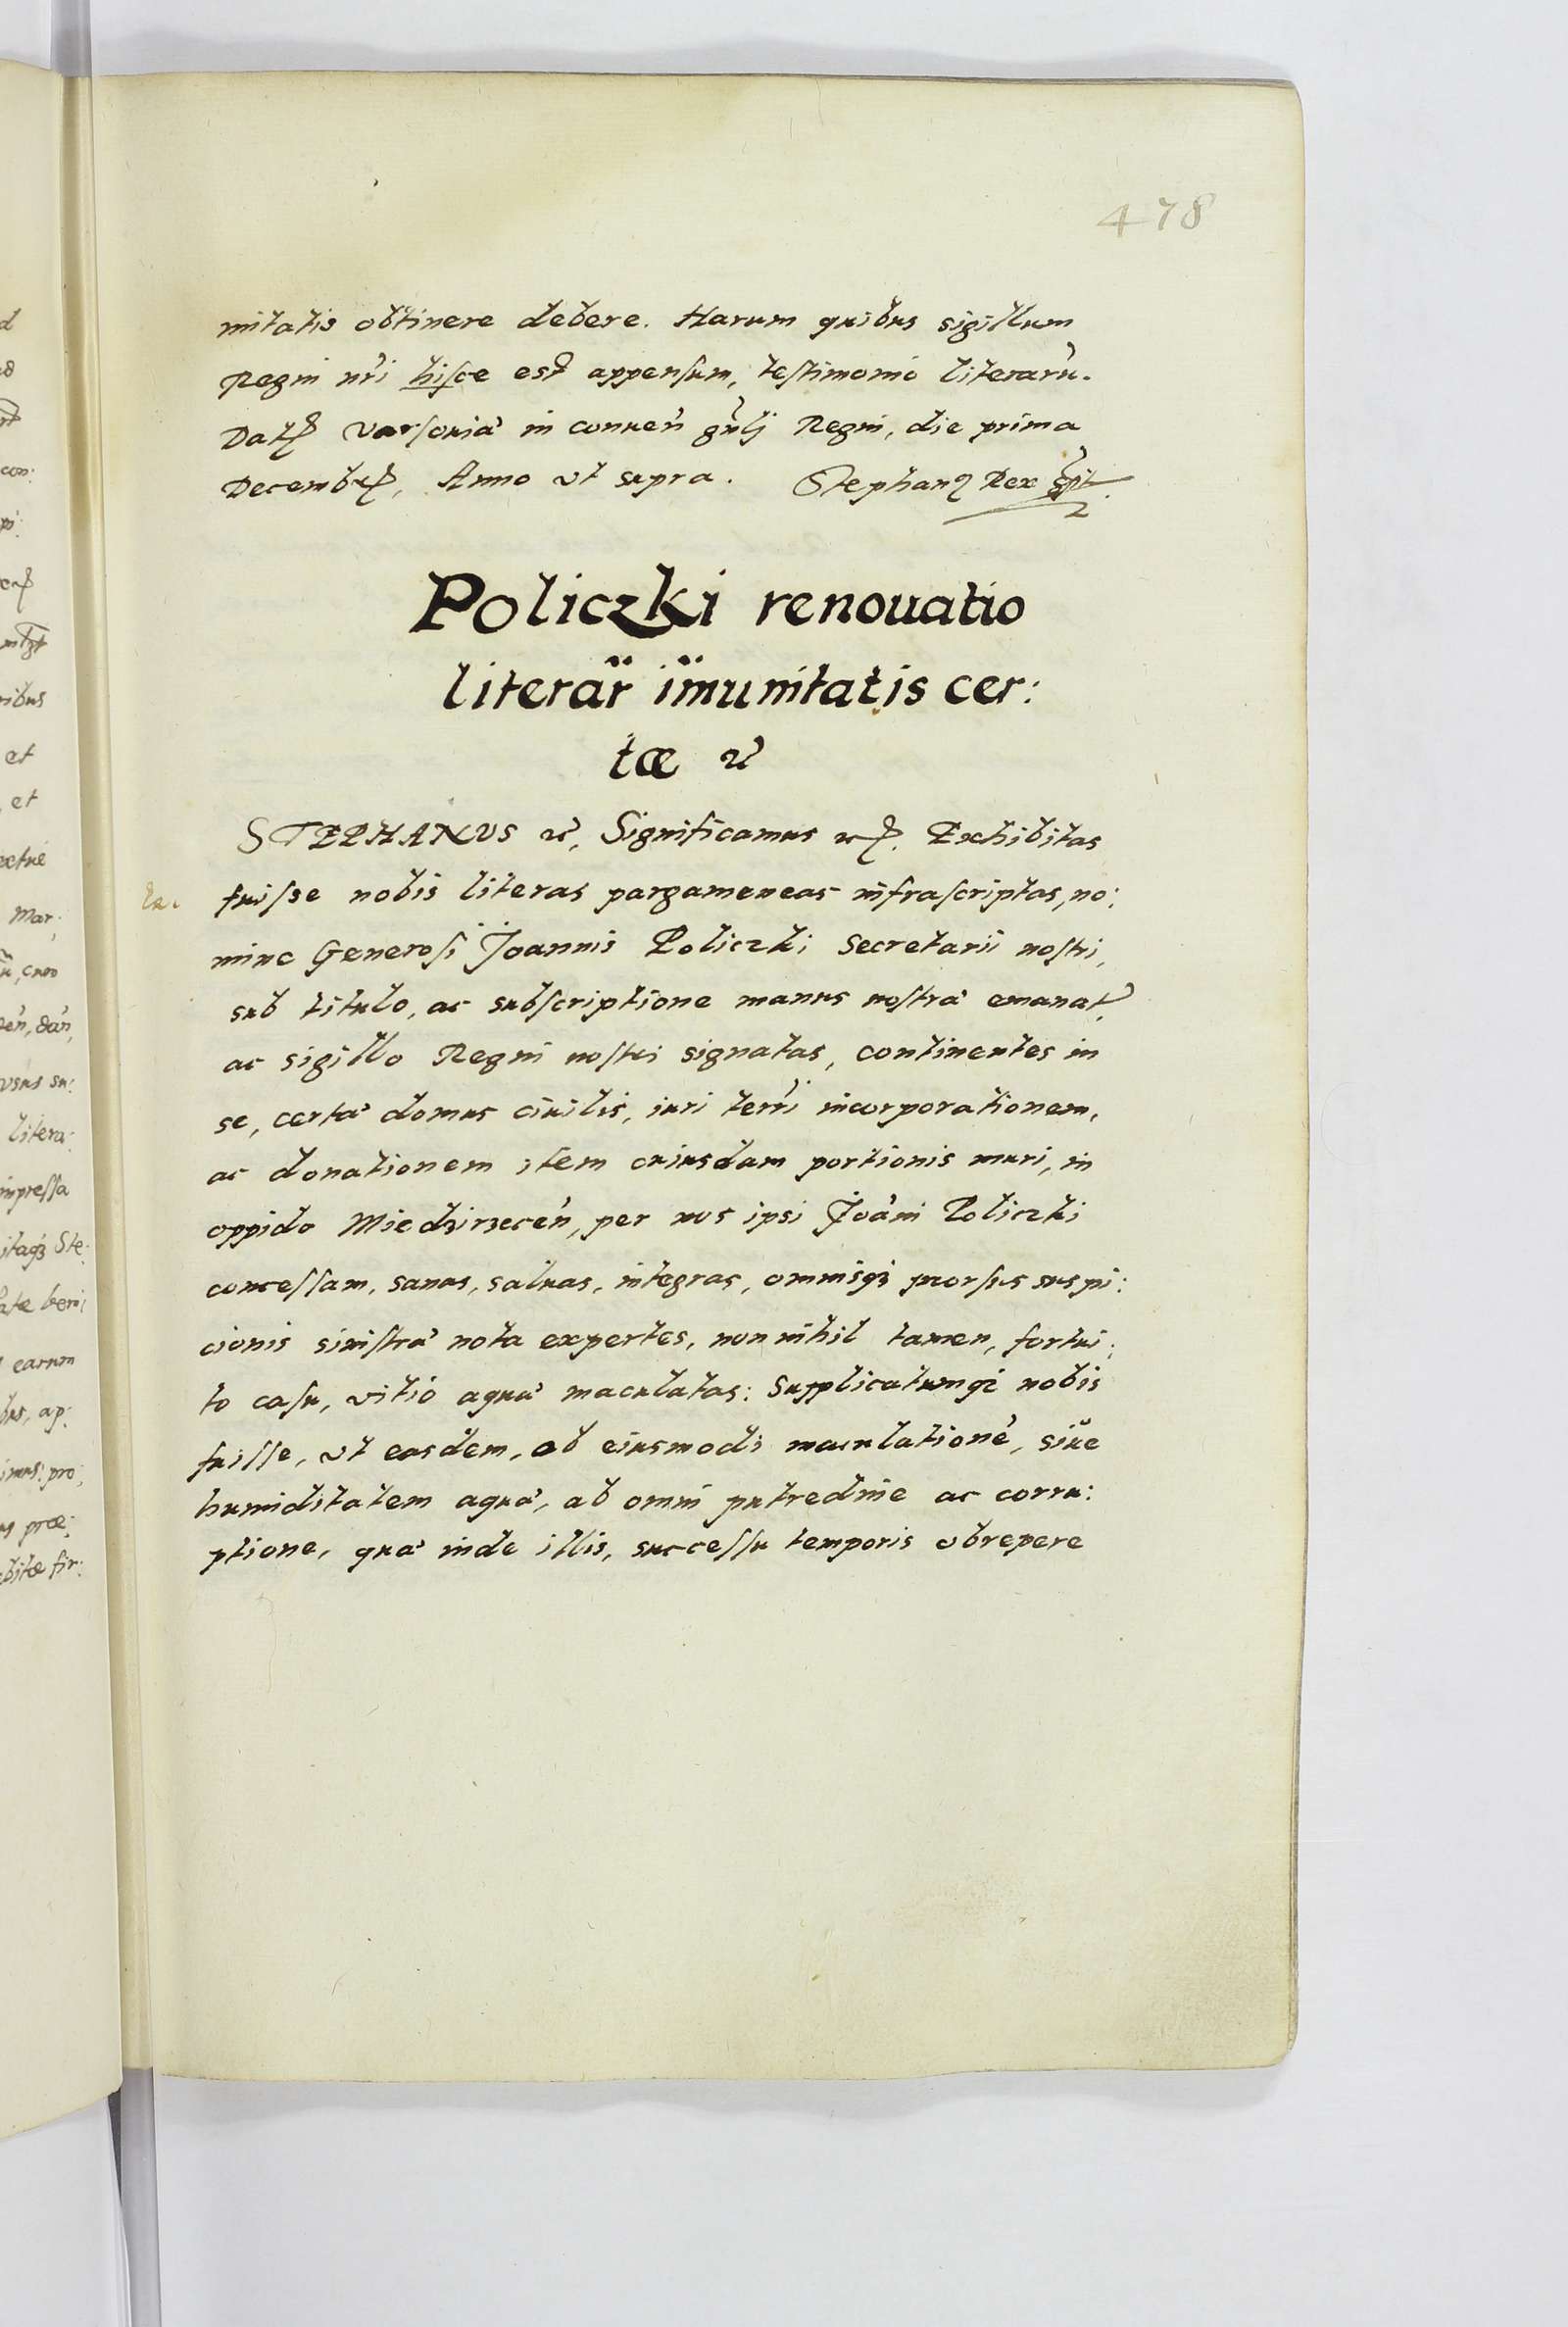 478
mitatis obtinere debere. Harum quibus sigillum
Regni nr̃i hisce est appensum, testimonio literarũ.
Dat Varsouiæ in conuen̄ gn̄lj Regni, die prima
Decembr, Anno vt supra. Stephanꝰ Rex sp̄t
Policzki renouatio
literar̃ im̃unitatis cer:
tæ etc̃
STEPHANVS etc̃, Significamus etc. Exhibitas
fuisse nobis literas pargameneas infrascriptas, no:
mine Generosi Joannis Policzki Secretarii nostri,
sub titulo, ac subscriptione manus nostræ emanat,
ac sigillo Regni nostri signatas, continentes in
se, certæ domus ciuilis, iuri terr̃i incorporationem,
ac donationem item cuiusdam portionis muri, in
oppido Miedzirzecen̄, per nos ipsi Joãni Policzki
concessam, sanas, saluas, integras, omnisqꝫ prorsus suspi:
cionis sinistræ nota expertes, non nihil tamen, fortui:
to casu, vitio aquæ maculatas: Supplicatumqꝫ nobis
fuisse, vt easdem, ob eiusmodi maculationẽ, siue
humiditatem aquæ, ab omni putredine ac corru:
ptione, quæ inde illis, successu temporis obrepere